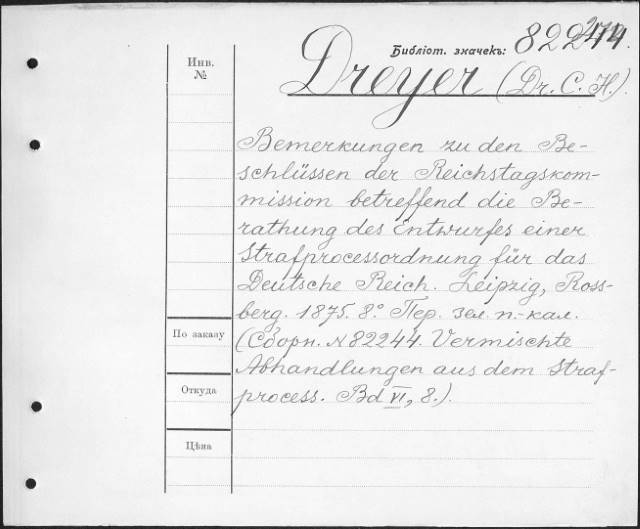 Библіот. значекъ: 82244.
Инв. №
Dreyer (Dr. C. H.).
Bemerkungen zu den Be-
schlüssen der Reichstagskom-
mission betreffend die Be-
rathung des Entwurfes einer
Strafprocessordnung für das
Deutsche Reich. Leipzig, Ross-
berg. 1875. 8.° Пер. зел. п.-кал.
По заказу
(Сборн. № 82244. Vermischte
Abhandlungen aus dem Straf-
Откуда
process. Bd VI, 8.).
Цѣна